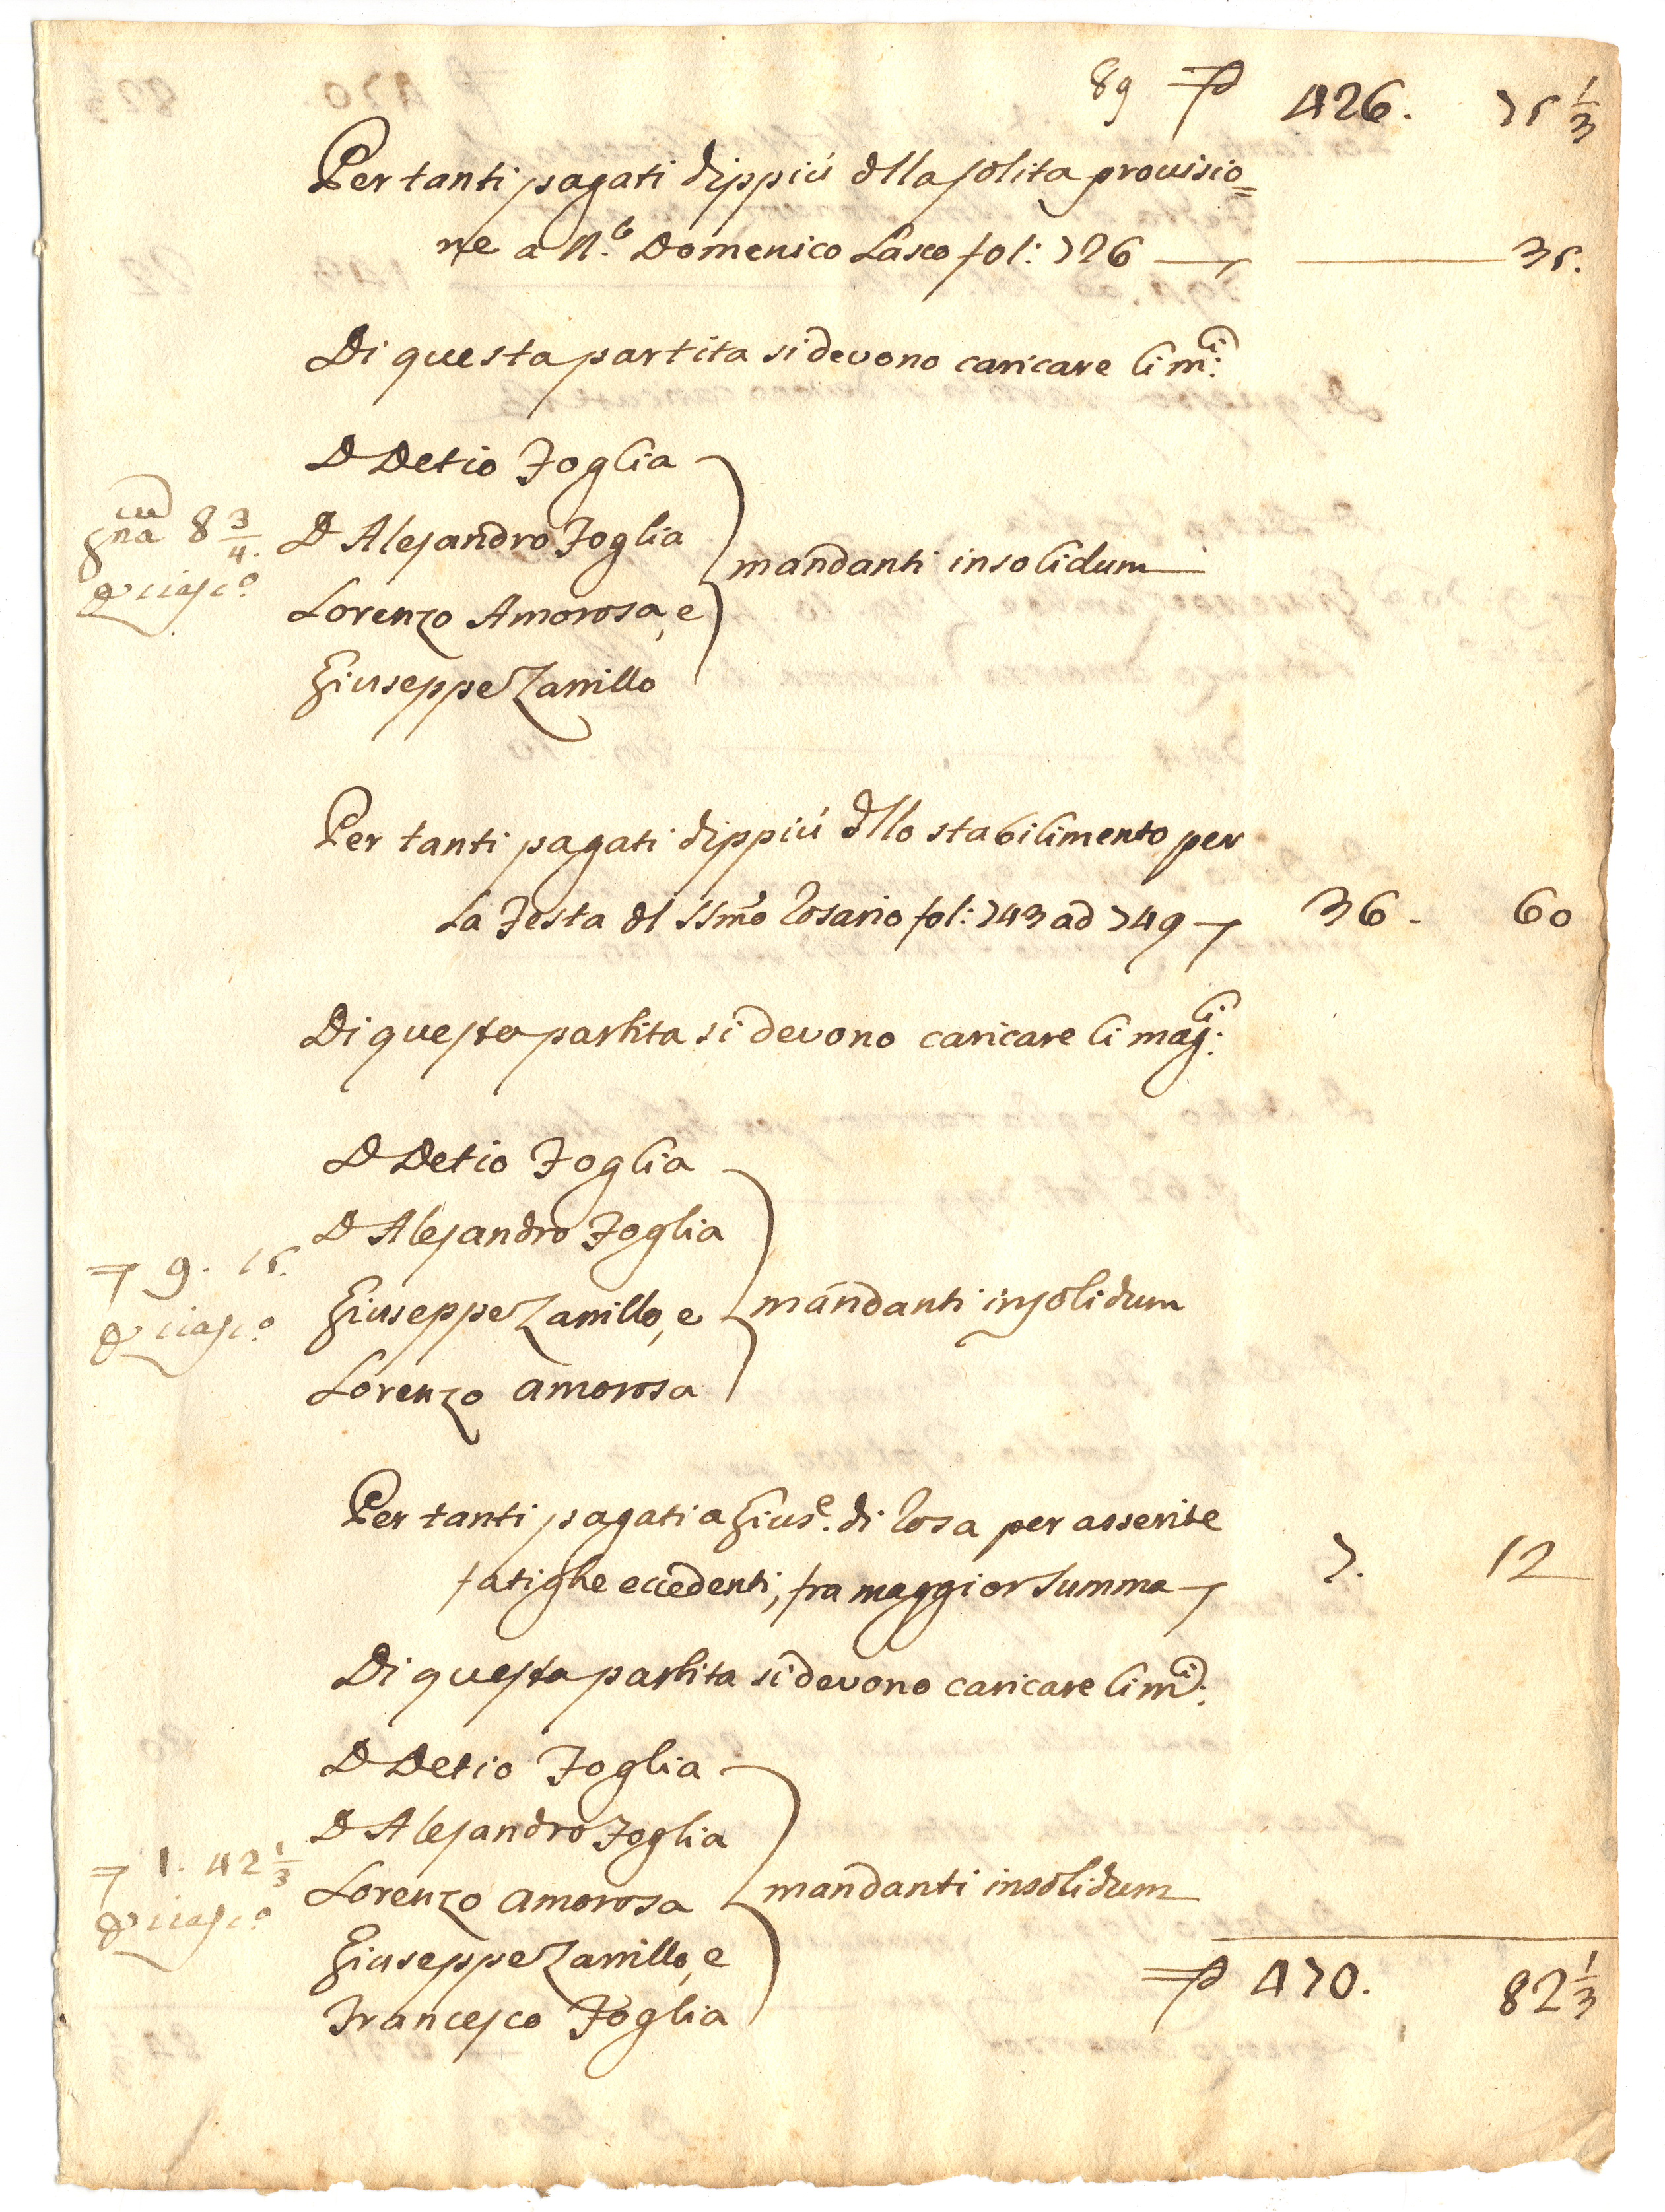 89 ₽ 426. 75 1/3
Per tanti pagati dippiú dlla solita prouisio=
ne a N.r Domenico Lasco fol: 726 — 35.
Di questa partita si devono caricare li m.ci:
D Detio Foglia
gna 8 3/4. D Alesandro Foglia mandanti insolidum
P ciasc.o Lorenzo Amorosa, e
Giuseppe Zarrillo
Per tanti pagati dippiú dllo stabilimento per
La Festa dl SSmo Rosario fol: 743 ad 749 — 36. 60
Di questa partita si devono caricare li mag.ci:
D Detio Foglia
D Alesandro Foglia
9. 15. Giuseppe Zarrillo, e mandanti insolidum
P ciasc.o Lorenzo amorosa
Per tanti pagati a Gius.e di Rosa per asserite
fatighe eccedenti, fra maggior Summa — 7. 12
Di questa partita si devono caricare li m.ci:
D Detio Foglia
D Alesandro Foglia
1. 42 1/3 Lorenzo amorosa mandanti insolidum
P ciasc.o Giuseppe Zarrillo, e
Francesco Foglia
₽ 470. 82 1/3